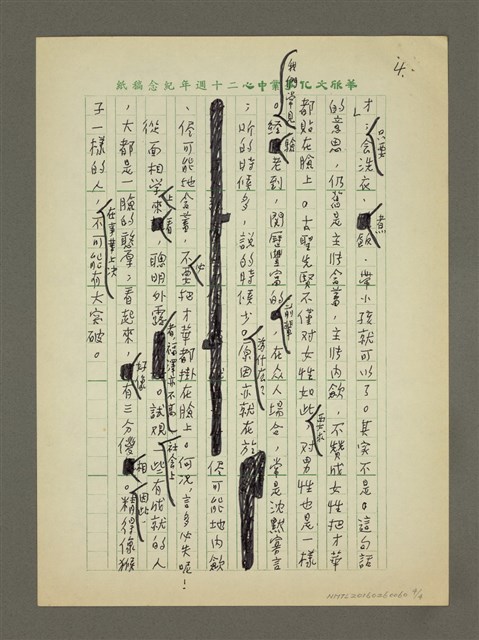 4.
華欣文化事業中心二十週年紀念稿紙
才」;只要會洗衣、煮飯、帶小孩就可以了。其實不是。這句話
的意思,仍舊是主張含蓄,主張內歛,不贊成女性把才華
都貼在臉上。古聖先賢不僅对女性如此要求,对男性也是一樣
。我們常見經驗老到,閱歷豐富的前輩,在众人場合,常是沈默寡言
;听的時候多,說的時候少。為什在?原因亦就在於
儘可能地內歛
、儘可能地含蓄,不必要把才華都掛在臉上。何況,言多必失呢!
從面相學來上看,聰明外露者,福澤亦不高。試观社会上些有成就的人
,大都是一臉的憨厚,看起來,好像有三分傻相。因此,精得像猴
子一樣的人,在事業上決不可能有大突破。
NMTL20160260060 4/8